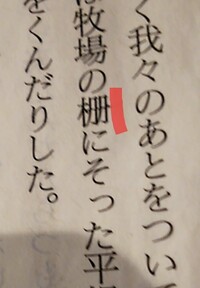 く我々のあとをつい
牧場の柵にそった平
をくんだりした。